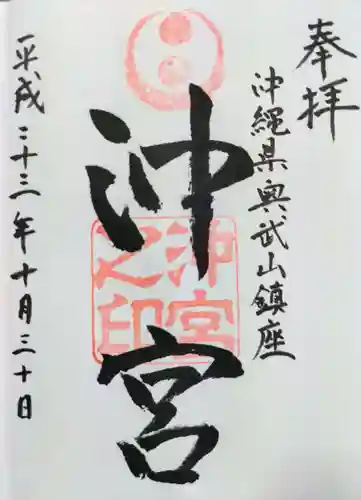 奉拝
沖縄県奥武山鎮座
沖宮
沖宮之印
平成二十三年十月三十日